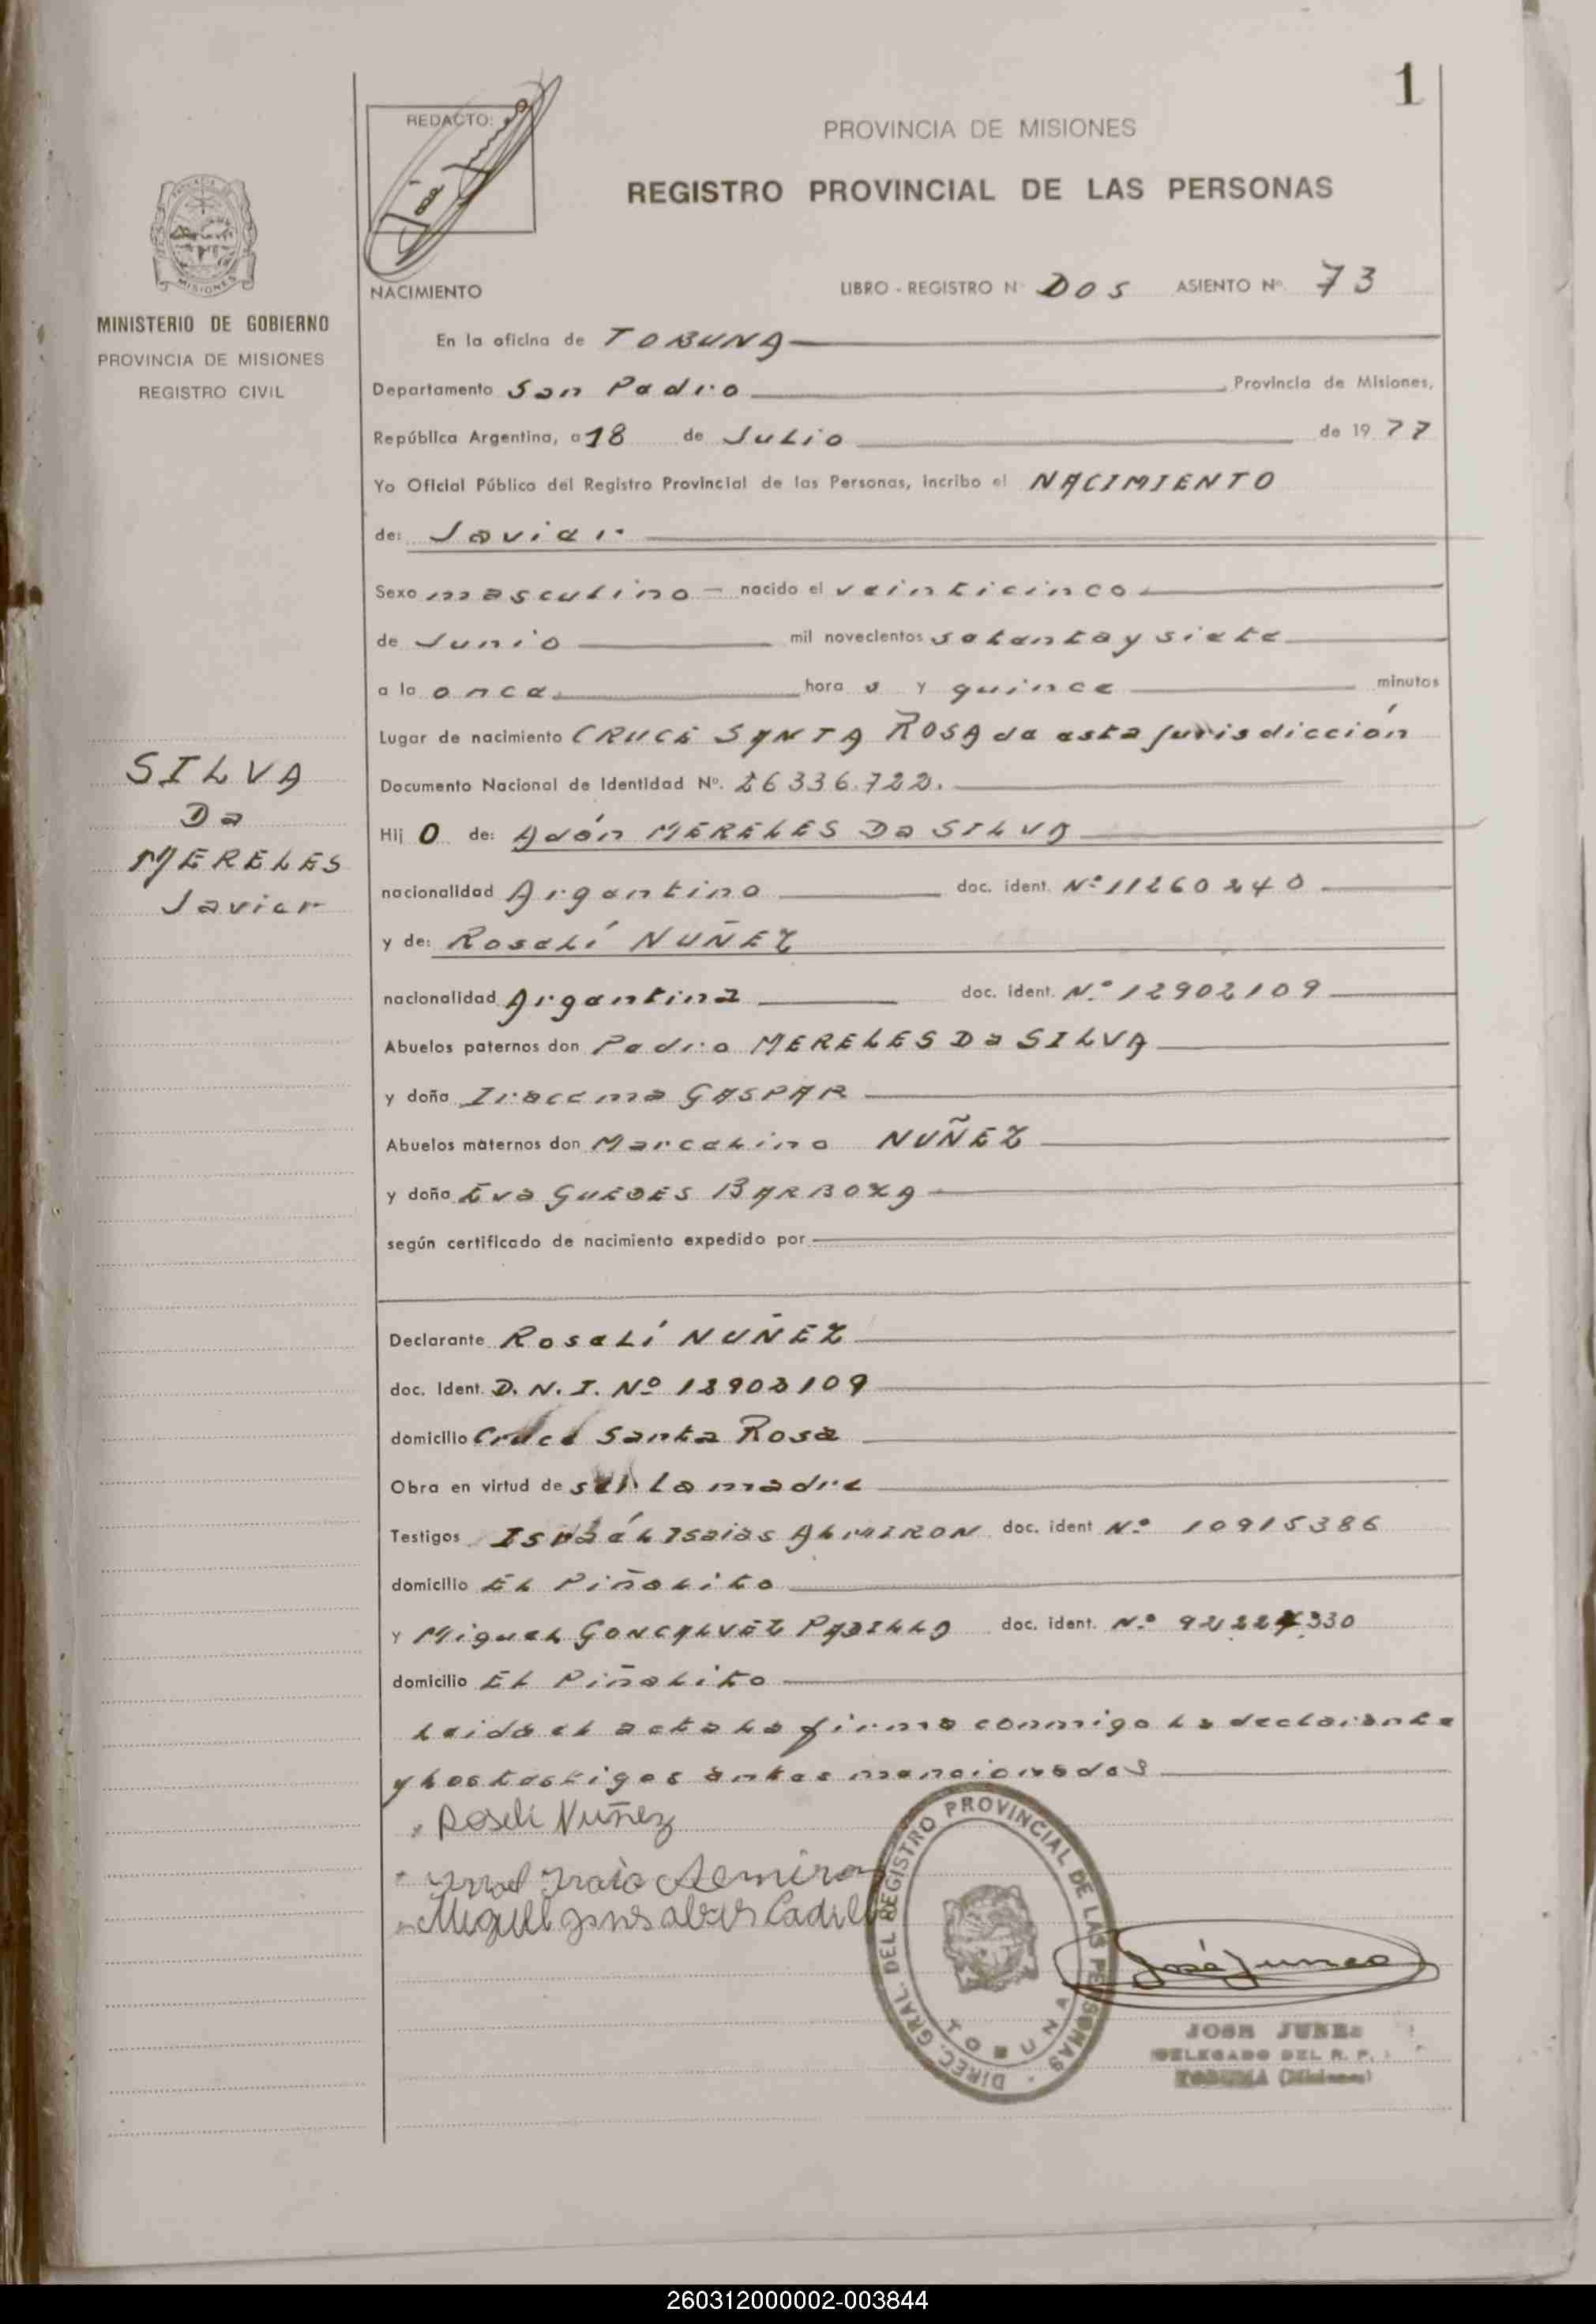 1
REDACTO:
PROVINCIA DE MISIONES
REGISTRO PROVINCIAL DE LAS PERSONAS
MISIONES
MINISTERIO DE GOBIERNO
PROVINCIA DE MISIONES
REGISTRO CIVIL
NACIMIENTO
LIBRO - REGISTRO N° DOS ASIENTO N° 73
En la oficina de TOBUNA
Departamento San Pedro Provincia de Misiones,
República Argentina, a 18 de Julio de 1977
Yo Oficial Público del Registro Provincial de las Personas, incribo el NACIMIENTO
de: Javier
Sexo masculino - nacido el veinticinco
de Junio mil novecientos setenta y siete
a la once hora s y quince minutos
Lugar de nacimiento CRUCE SANTA ROSA de esta jurisdicción
Documento Nacional de Identidad N°. 26336.722.
SILVA
Da
MERELES
Javier
Hij O de: Adán MERELES Da SILVA
nacionalidad Argentino doc. ident. N° 11260240
y de: Roselí NUÑEZ
nacionalidad Argentina doc. ident. N° 12902109
Abuelos paternos don Pedro MERELES Da SILVA
y doña Iracema GASPAR
Abuelos maternos don Marcelino NUÑEZ
y doña Eva GUEDES BARBOZA
según certificado de nacimiento expedido por
Declarante Roselí NUÑEZ
doc. Ident. D. N. I. Nº 12902109
domicilio Cruce Santa Rosa
Obra en virtud de ser La madre
Testigos Ismaél Isaias ALMIRON doc. ident N° 10915386
domicilio EL Piñalito
y Miguel GONCALVEZ PADILLA doc. ident. N°
domicilio EL Piñalito
Leida el acta la firma conmigo la declarante
y los testigos antes mencionados
Roseli Nuñez
DIREC. GRAL. DEL REGISTRO PROVINCIAL DE LAS PERSONAS
TOBUNA
José Junes
JOSE JUNES
DELEGADO DEL R. P.
TOBUNA (Misiones)
260312000002-003844